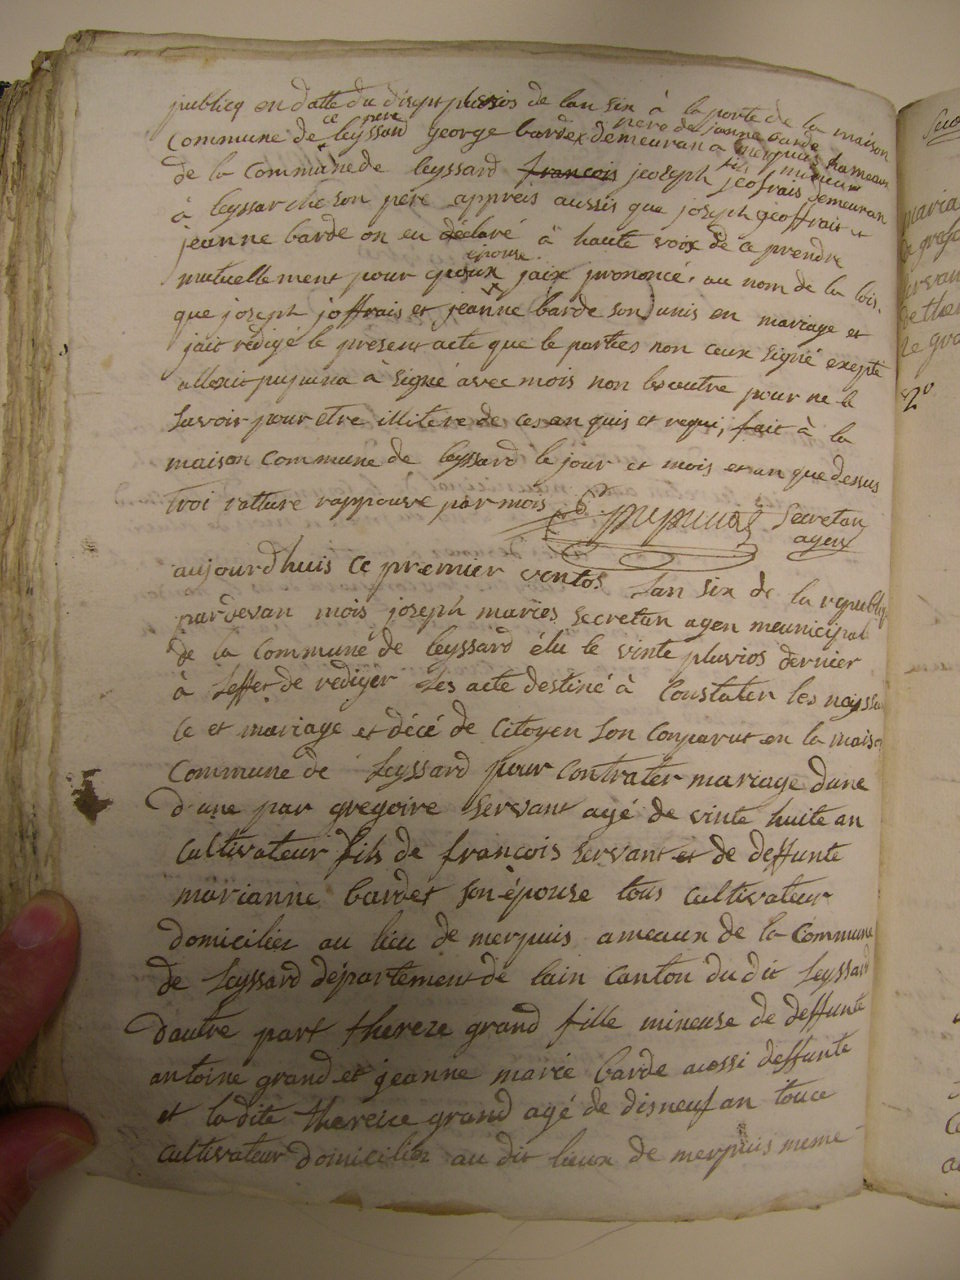 publicq en datte du disept pluvios de lan six à la porte de la maison
commune de ce leyssard George bardet père demeuran a merpuis hameaux
père de Jeanne barde mineur
de la Commune de leyssard françois jeoseph jeofrais fils demeuran
à leyssar ché son père appreis aussis que joseph geoffrais et
jeanne barde on eu déclaré à haute voix de ce prendre
mutuellement pour epoux épouse jaix prononcé au nom de la loi
que joseph joffrais et jeanne barde son unis en mariage et
jait rédigé le présent acte que le parties non ceux signé exepté
à signé avec mois non les autre pour ne le
savoir pour etre illitere de ce enquis et requi, fait à la
maison Commune de leyssard le jour et mois et an que dessus
troi ratture rappouvé par mois secretan
agent
aujourdhuis ce premier ventos lan six de la republiq
pardevan mois joseph maries secretan agen meunicipal
de la Commune de leyssard élu le vinte pluvios dernier
à leffet de rediger les acte destiné à Constater les naissan
ce et mariage et décé de Citoyen son Conparut en la maison
Commune de Leyssard pour Contrater mariage dune
d'une par gregoire servant agé de vinte huite an
Cultivateur fils de françois servant et de deffunte
marianne bardet son épouse tous cultivateur
domicilier au lieu de merpuis ameaux de la Commune
de Leyssard département de lain Canton du dit Leyssard
dautre part thereze grand fille mineuse de deffunte
antoine grand et jeanne marie barde aossi deffunte
et ladite thereze grand agé de disneuf an touce
cultivateur domicilier au dit lieux de merpuis meme
maria
de grego
servan
de ther
le gra
2°